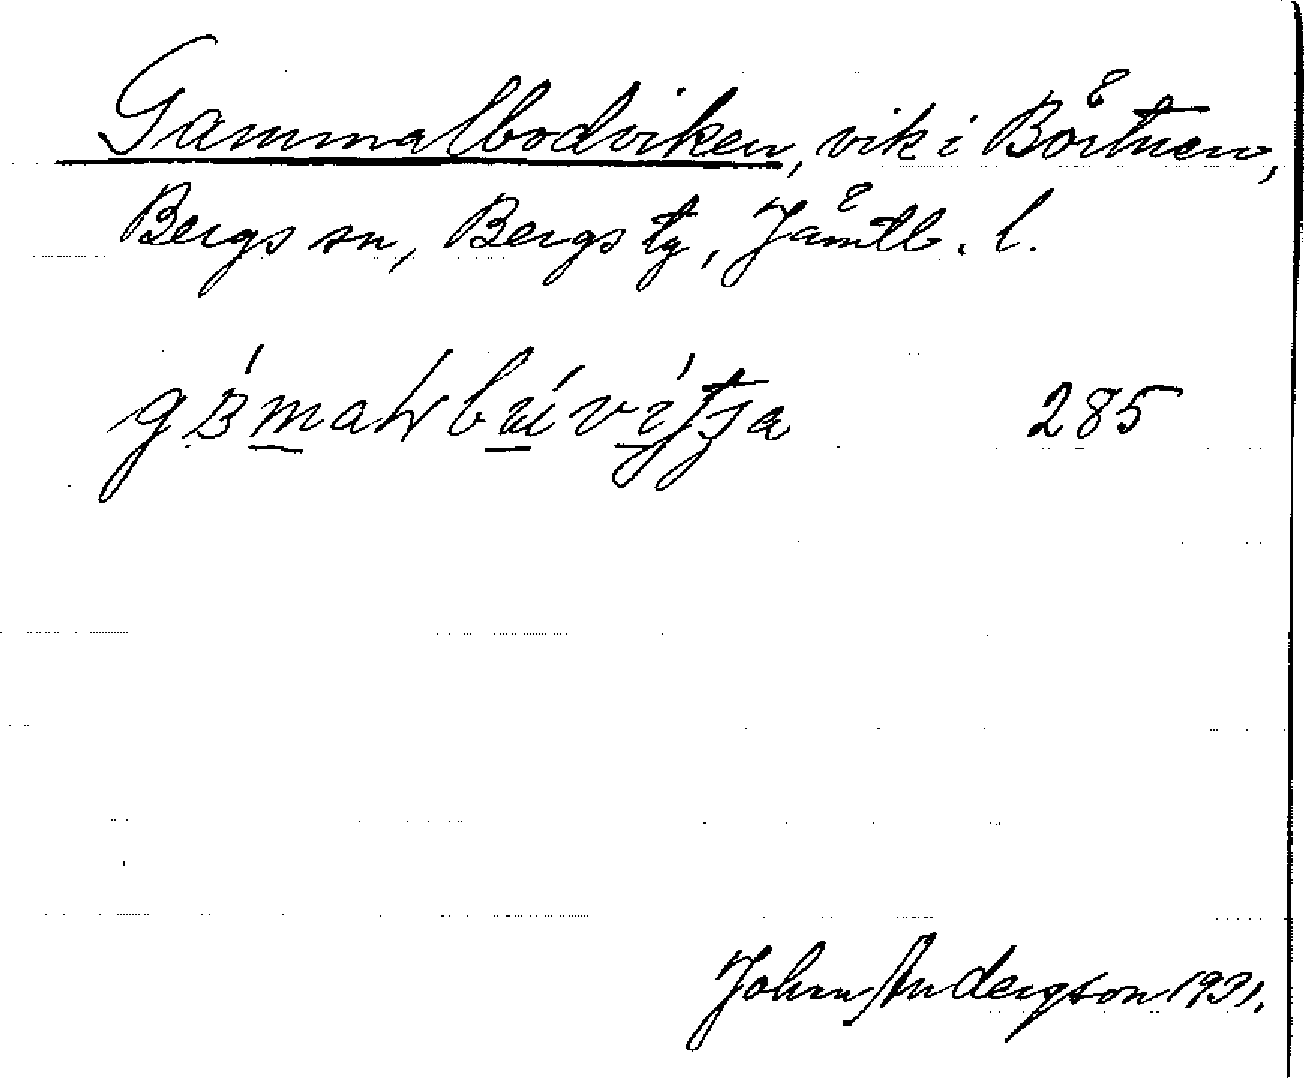 Gammalbodviken, vik i Börtnen,
Bergs sn, Bergs tg, Jämtl. l.
285
John Anderson 1931.